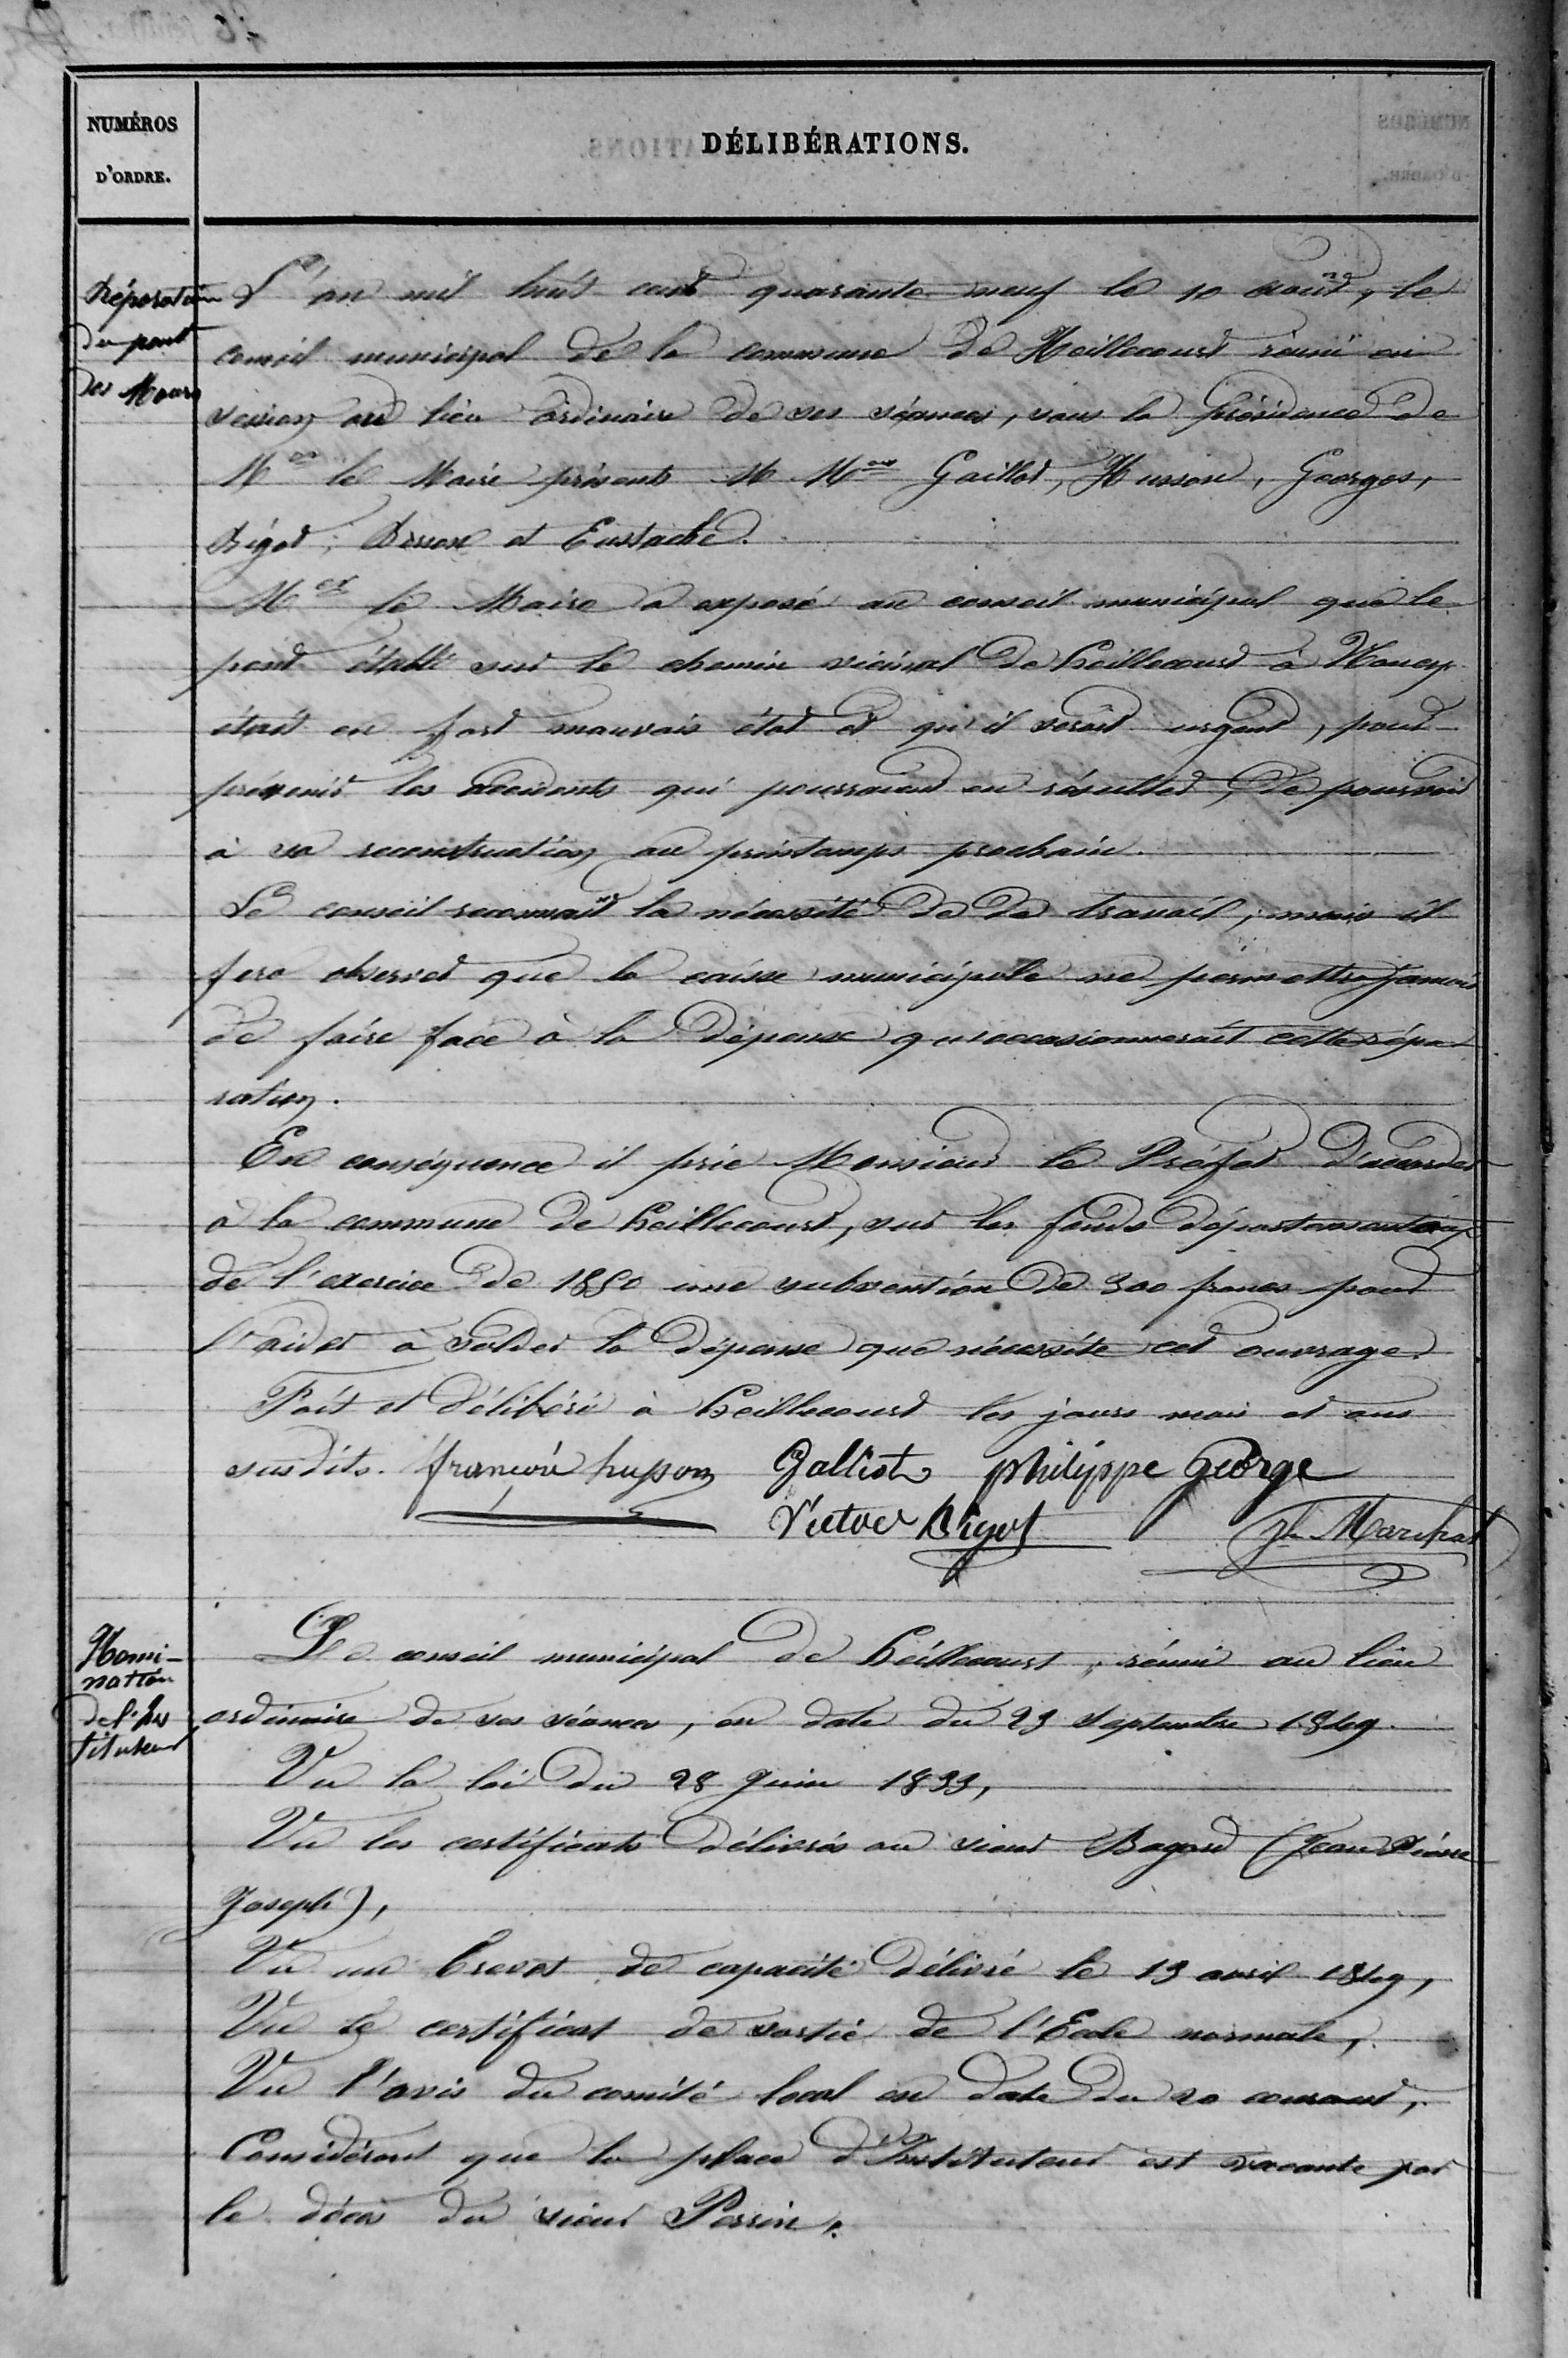 NUMÉROS
D'ORDRE.
DÉLIBÉRATIONS.
Réparation
du pont
des Mours
L'an mil huit cent quarante neuf le 10 août, le
conseil municipal de la commune de Heillecourt réuni en
session au lieu ordinaire de ses séances, sous la présidence de
Mr le Maire présents M. Mrs Gaillot, Husson, Georges,
Bigot, et Eustache.
Mr le Maire a exposé au conseil municipal que le
pont établi sur le chemin vicinal de heillecourt à Nancy
était en fort mauvais état et qu'il serait urgent, pour
prévenir les accidents qui pourraient en résulter, de pourvoir
à sa reconstruction au printemps prochain.
Le conseil reconnait la nécessité de de travail, mais il
fera observer que la caisse municipale ne permettra jamais
de faire face à la dépense qu'occasionnerait cette répa
ration.
En conséquence il prie Monsieur le Préfet d'accorder
à la commune de heillecourt, sur les fonds départementaux
de l'exercice de 1850 une subvention de 300 francs pour
l'aider à solder la dépense que nécessite cet ouvrage.
Fait et délibéré à heillecourt les jours mois et ans
susdits. françois husson Galliot philippe George
Victor Bigot Jh Marchal
Nomi-
nation
de l'Ins
tituteur
Le conseil municipal de heillecourt, réuni au lieu
ordinaire de ses séances, en date du 23 septembre 1849.
Vu la loi du 28 Juin 1833,
Vu les certificats délivrés au sieur Bagard (Jean Pierre
Joseph),
Vu un brevet de capacité délivré le 13 avril 1849,
Vu le certificat de sortie de l'Ecole normale,
Vu l'avis du comité local en date du 20 courant,
Considérant que la place d'Instituteur est vacante par
le décès du sieur Perrin.